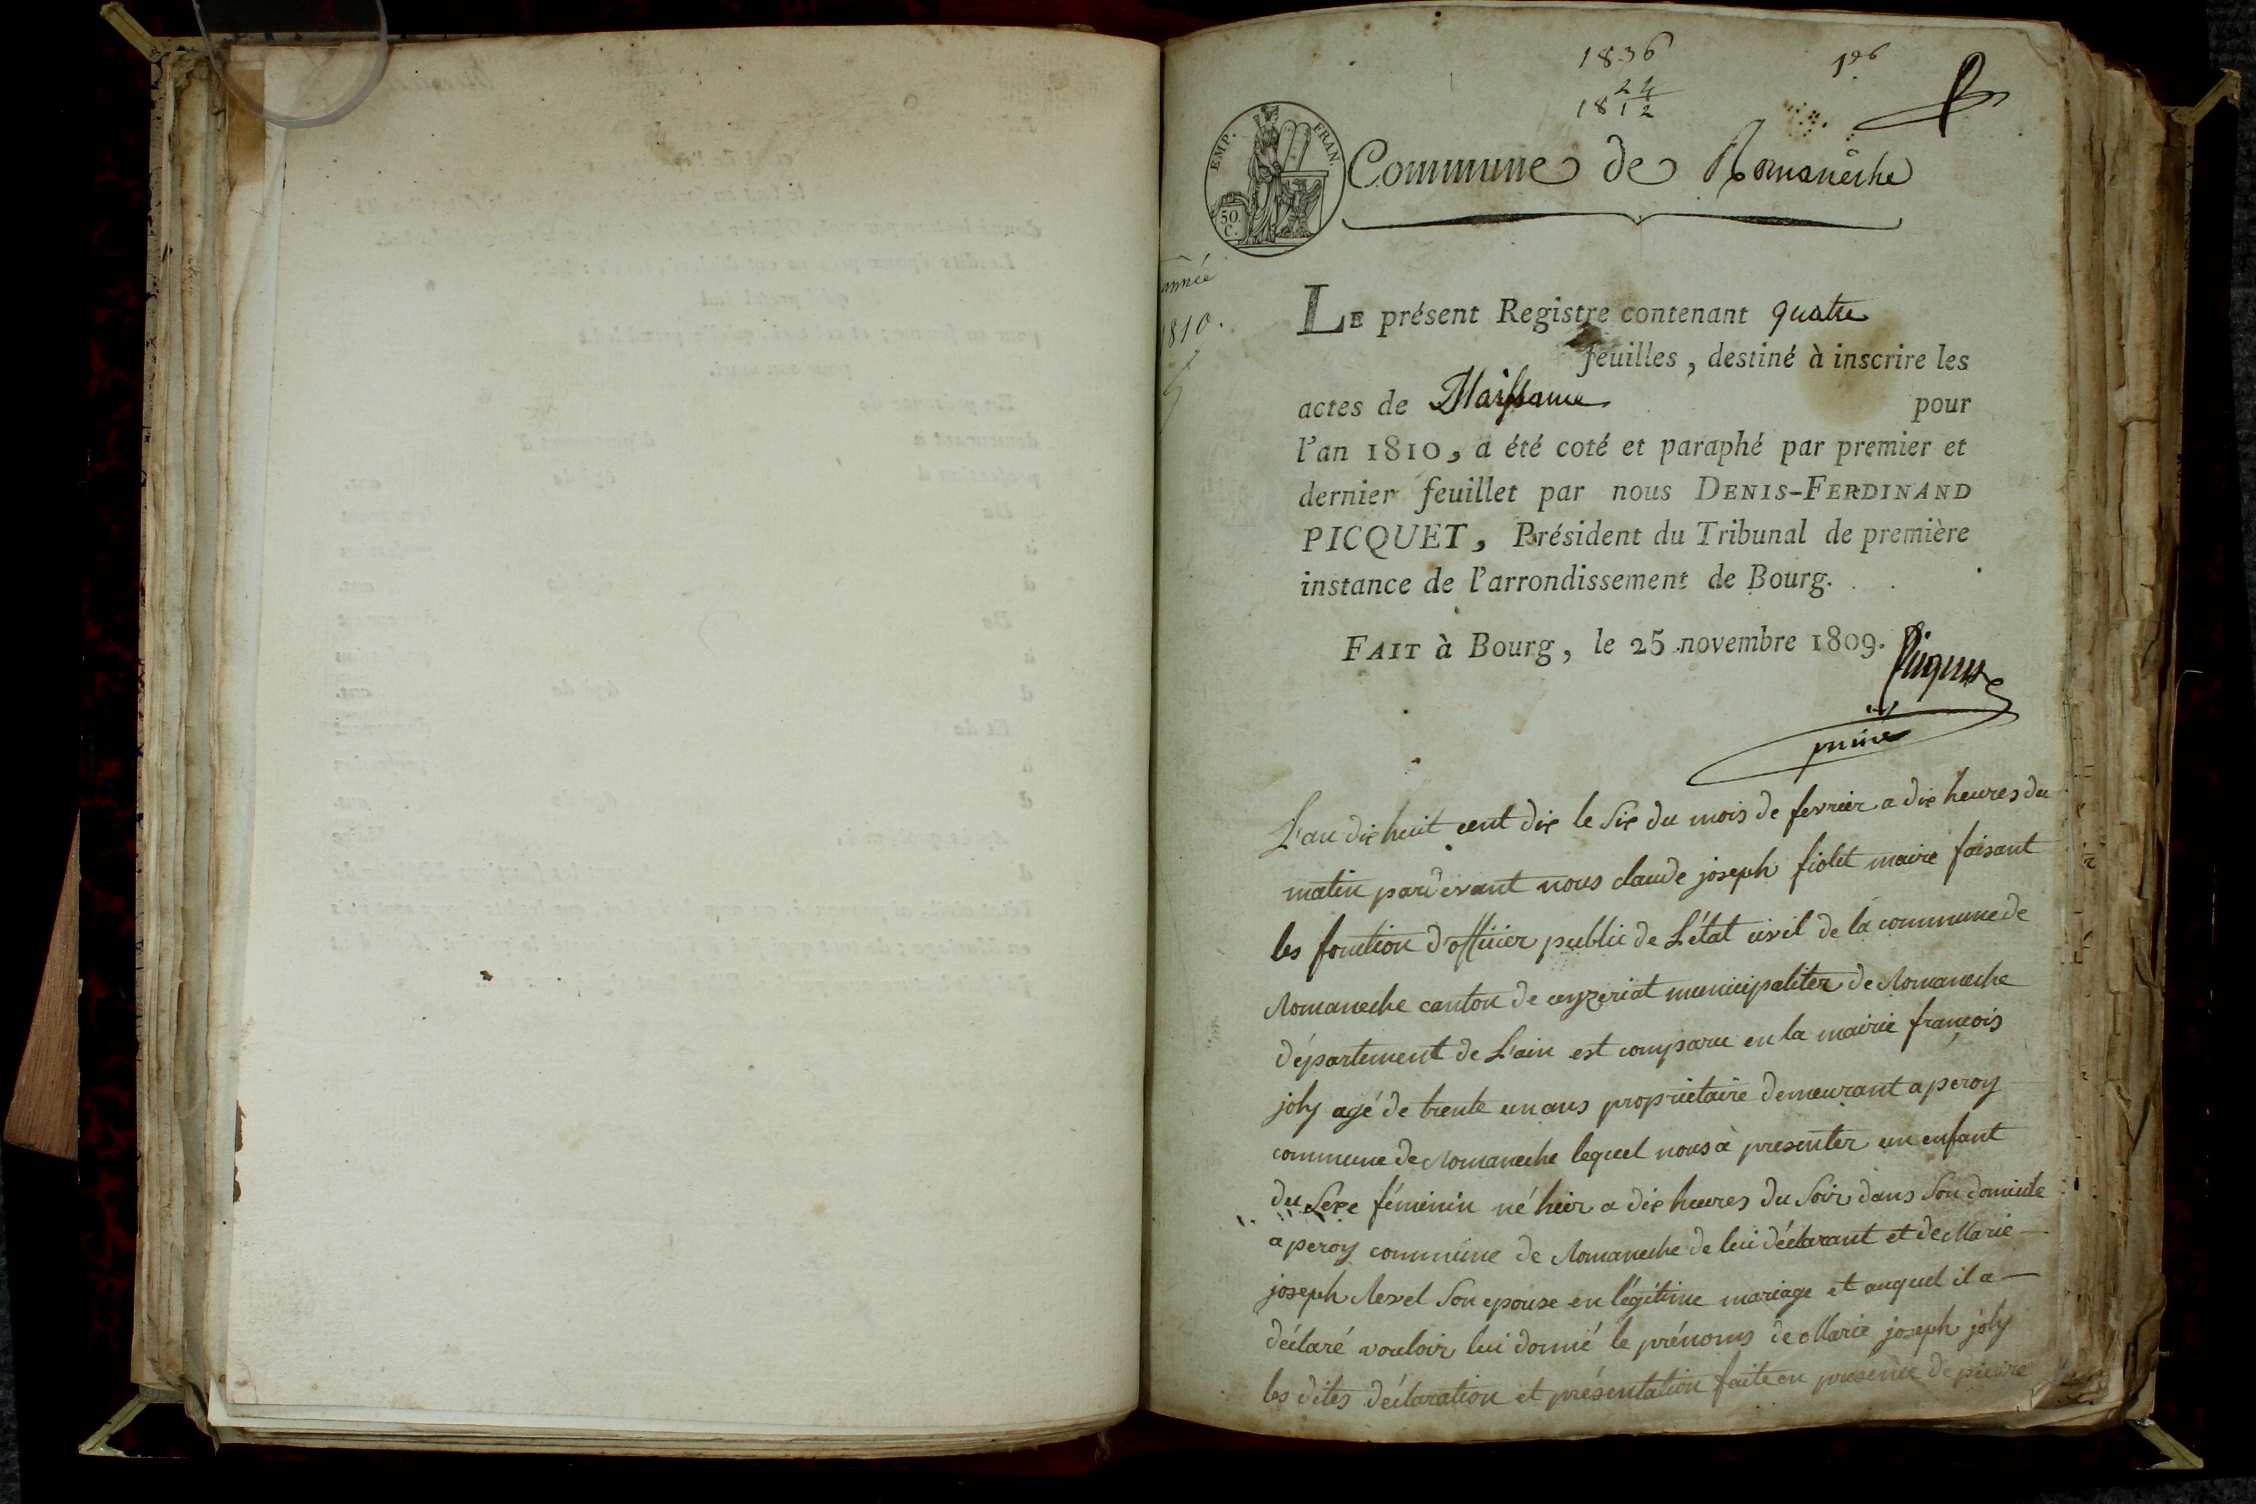 1836
24
1812
EMP. FRAN.
50.
C.
Commune de Romanêche
année
1810.
LE présent Registre contenant quatre
feuilles, destiné à inscrire les
actes de Naissance pour
l'an 1810, a été coté et paraphé par premier et
dernier feuillet par nous DENIS-FERDINAND
PICQUET, Président du Tribunal de première
instance de l'arrondissement de Bourg.
FAIT à Bourg, le 25 novembre 1809.
Picquet
L'an dix huit cent dix le Six du mois de fevrier a dix heures du
matin pardevant nous claude joseph fiolet maire faisant
les fonction d'officier public de L'état civil de la commune de
Romaneche canton de ceyzeriat municipaliter de Romaneche
département de L'ain est comparu en la mairie françois
joly agé de trente un ans propriétaire demeurant a peroy
commune de Romaneche lequel nous à presenter un enfant
du Sexe féminin né hier a dix heures du Soir dans Son domicile
a peroy commune de Romaneche de lui déclarant et de Marie
joseph Revel Son epouse en légitime mariage et auquel il a
déclaré vouloir lui donné le prénoms de Marie joseph joly
les dites déclaration et présentation faite en présence de pierre